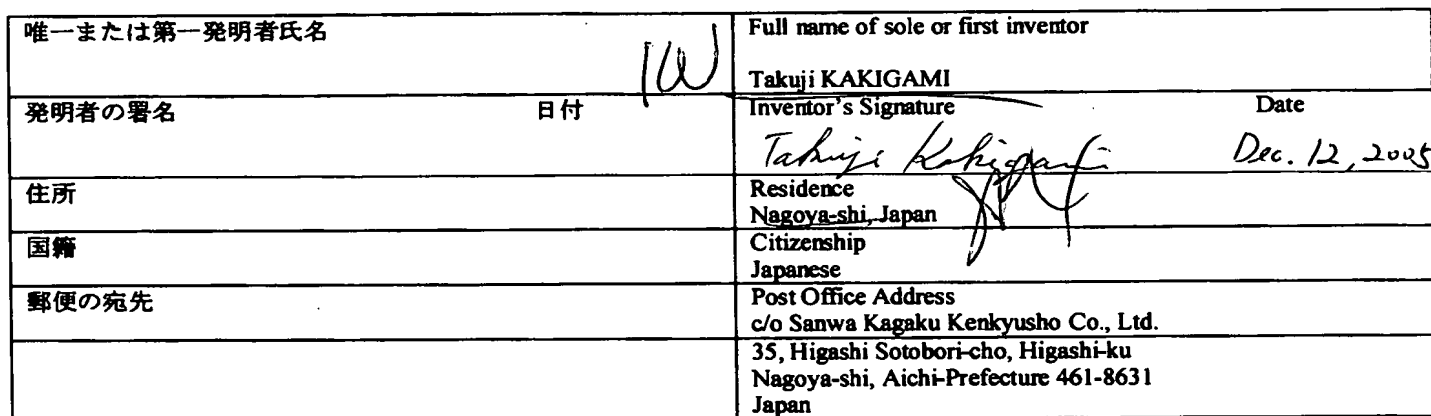 唯一または第一発明者氏名
Full name of sole or first inventor
Takuji KAKIGAMI
発明者の署名 日付
Inventor's Signature Date
Takuji Kakigami Dec. 12, 2005
住所
Residence
Nagoya-shi, Japan
国籍
Citizenship
Japanese
郵便の宛先
Post Office Address
c/o Sanwa Kagaku Kenkyusho Co., Ltd.
35, Higashi Sotobori-cho, Higashi-ku
Nagoya-shi, Aichi-Prefecture 461-8631
Japan